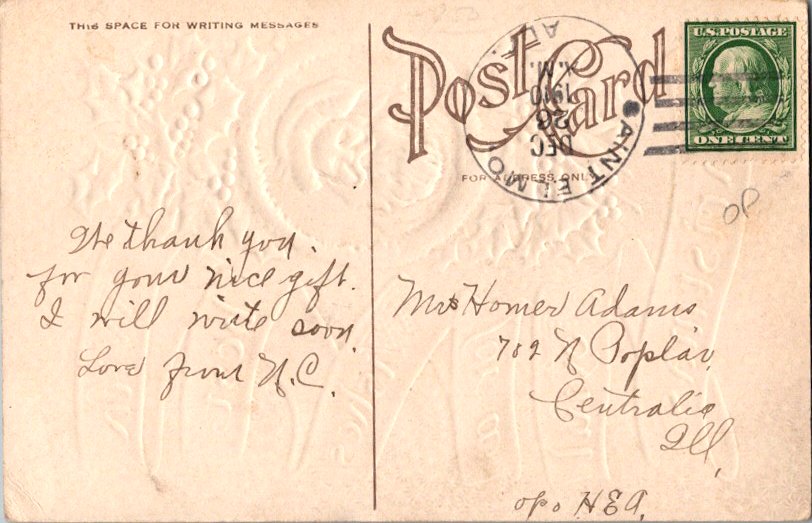 THIS SPACE FOR WRITING MESSAGES
We thank you.
for your nice gift.
I will write soon.
Love from N.C.
Post Card
FOR ADDRESS ONLY
SAINT ELMO
DEC
26
1910
U.S. POSTAGE
ONE CENT
OP
Mrs Homer Adams
702 N Poplar,
Centralia
Ill,
opo HEA.